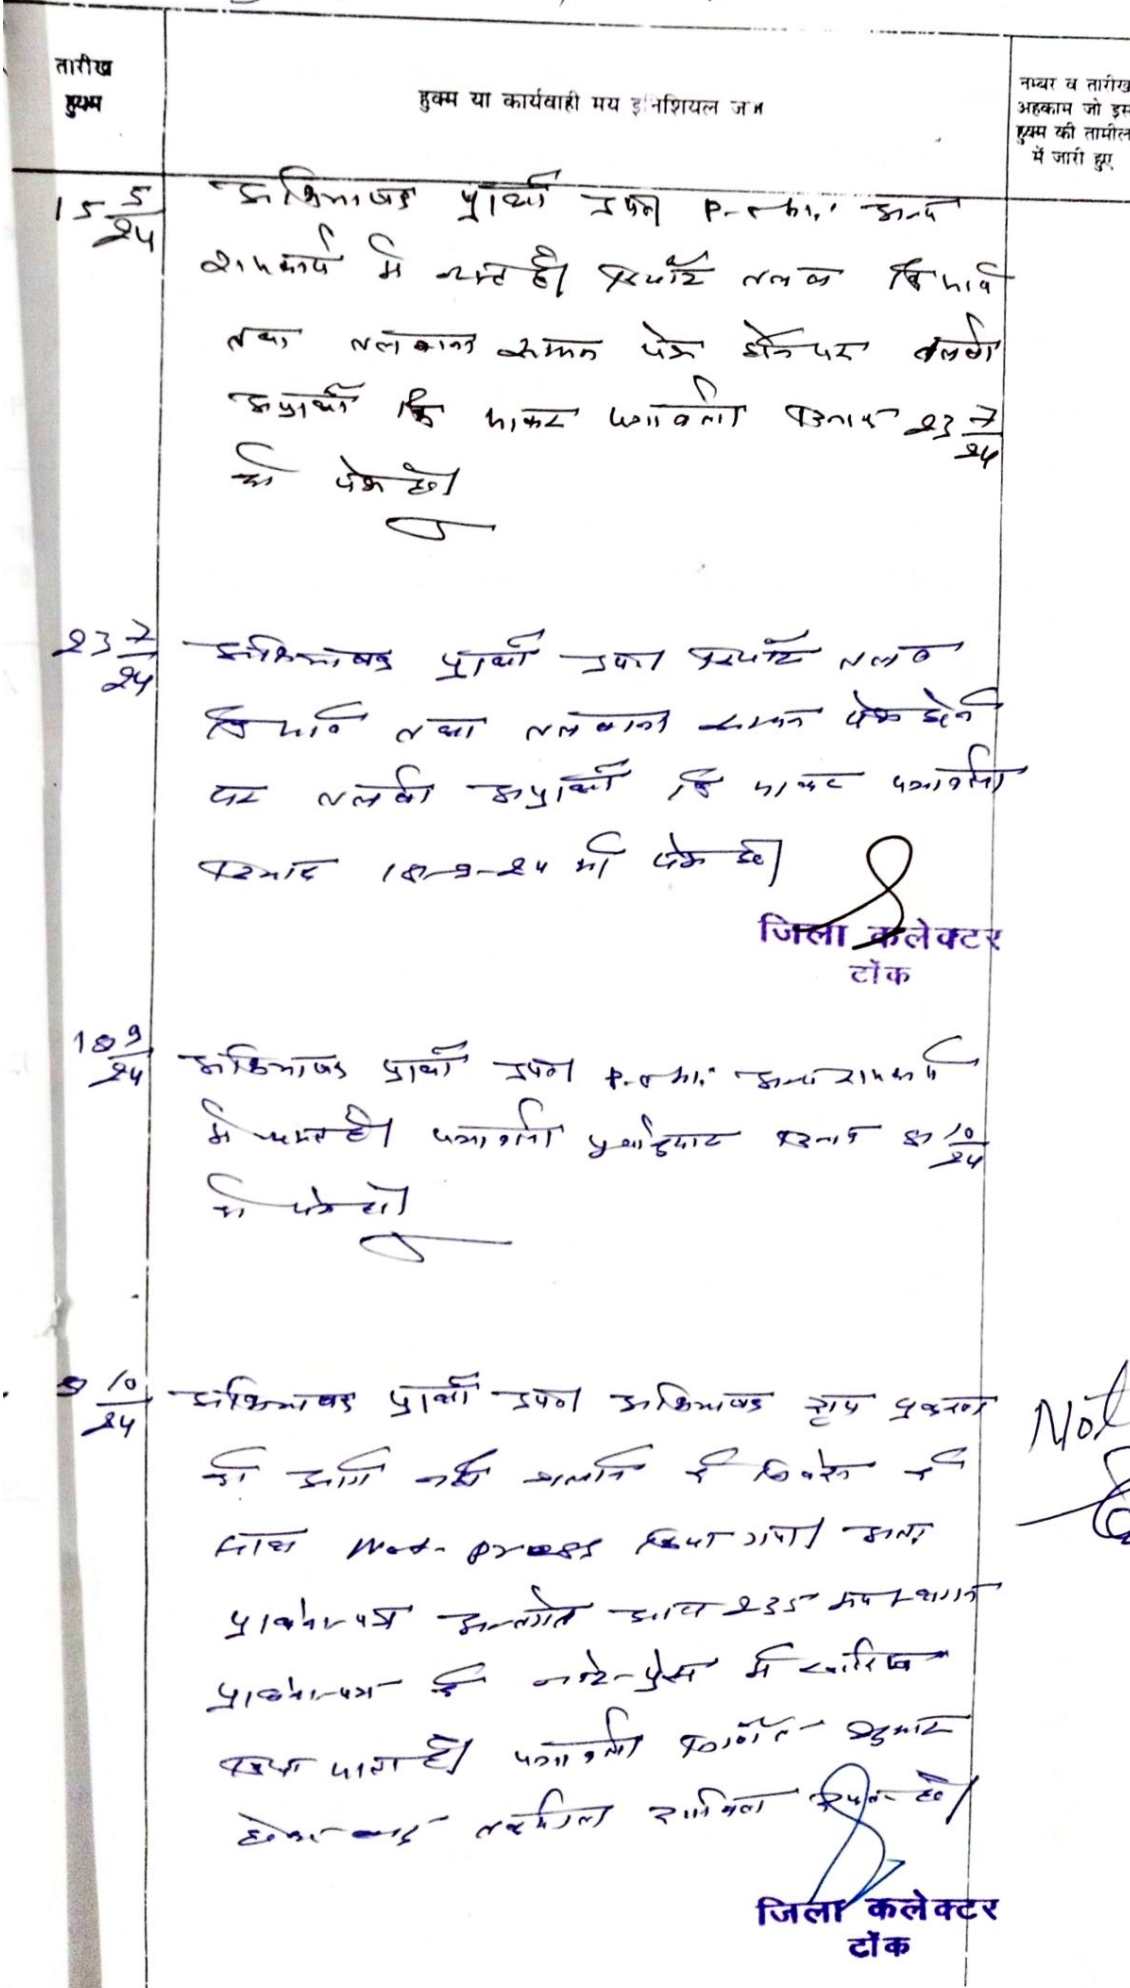 तारीख
हुक्म
हुक्म या कार्यवाही मय इनिशियल जज
नम्बर व तारीख
अहकाम जो इस
हुक्म की तामील
में जारी हुए
15 5/24
अभिभाषक प्रार्थी उप० P.O. अन्य
राजकार्य में व्यस्त है। रिपोर्ट तलब कि जावे
तथा तलबाना सामान पेश होने पर तलबी
अप्रार्थी कि जाकर पत्रावली दिनांक 23 7/24
को पेश हो।
23 7/24
अभिभाषक प्रार्थी उप० रिपोर्ट तलब
कि जावे तथा तलबाना सामान पेश होने
पर तलबी अप्रार्थी कि जाकर पत्रावली
दिनांक 18-9-24 को पेश हो।
जिला कलेक्टर
टोंक
18 9/24
अभिभाषक प्रार्थी उप० P.O. अन्य राजकार्य
में व्यस्त है। पत्रावली पूर्वानुसार दिनांक 8 10/24
को पेश हो।
8 10/24
अभिभाषक प्रार्थी उप० अभिभाषक द्वारा प्रकरण
को आगे नही चलाने के निवेदन के
साथ Not-press किया गया। अतः
प्रार्थना पत्र अन्तर्गत धारा 235 मय स्थगन
प्रार्थना-पत्र के नोट-प्रेस में खारिज
किया जाता है। पत्रावली निर्णित शुमार
होकर बाद तकमील दाखिल दफ्तर हो।
Not
जिला कलेक्टर
टोंक